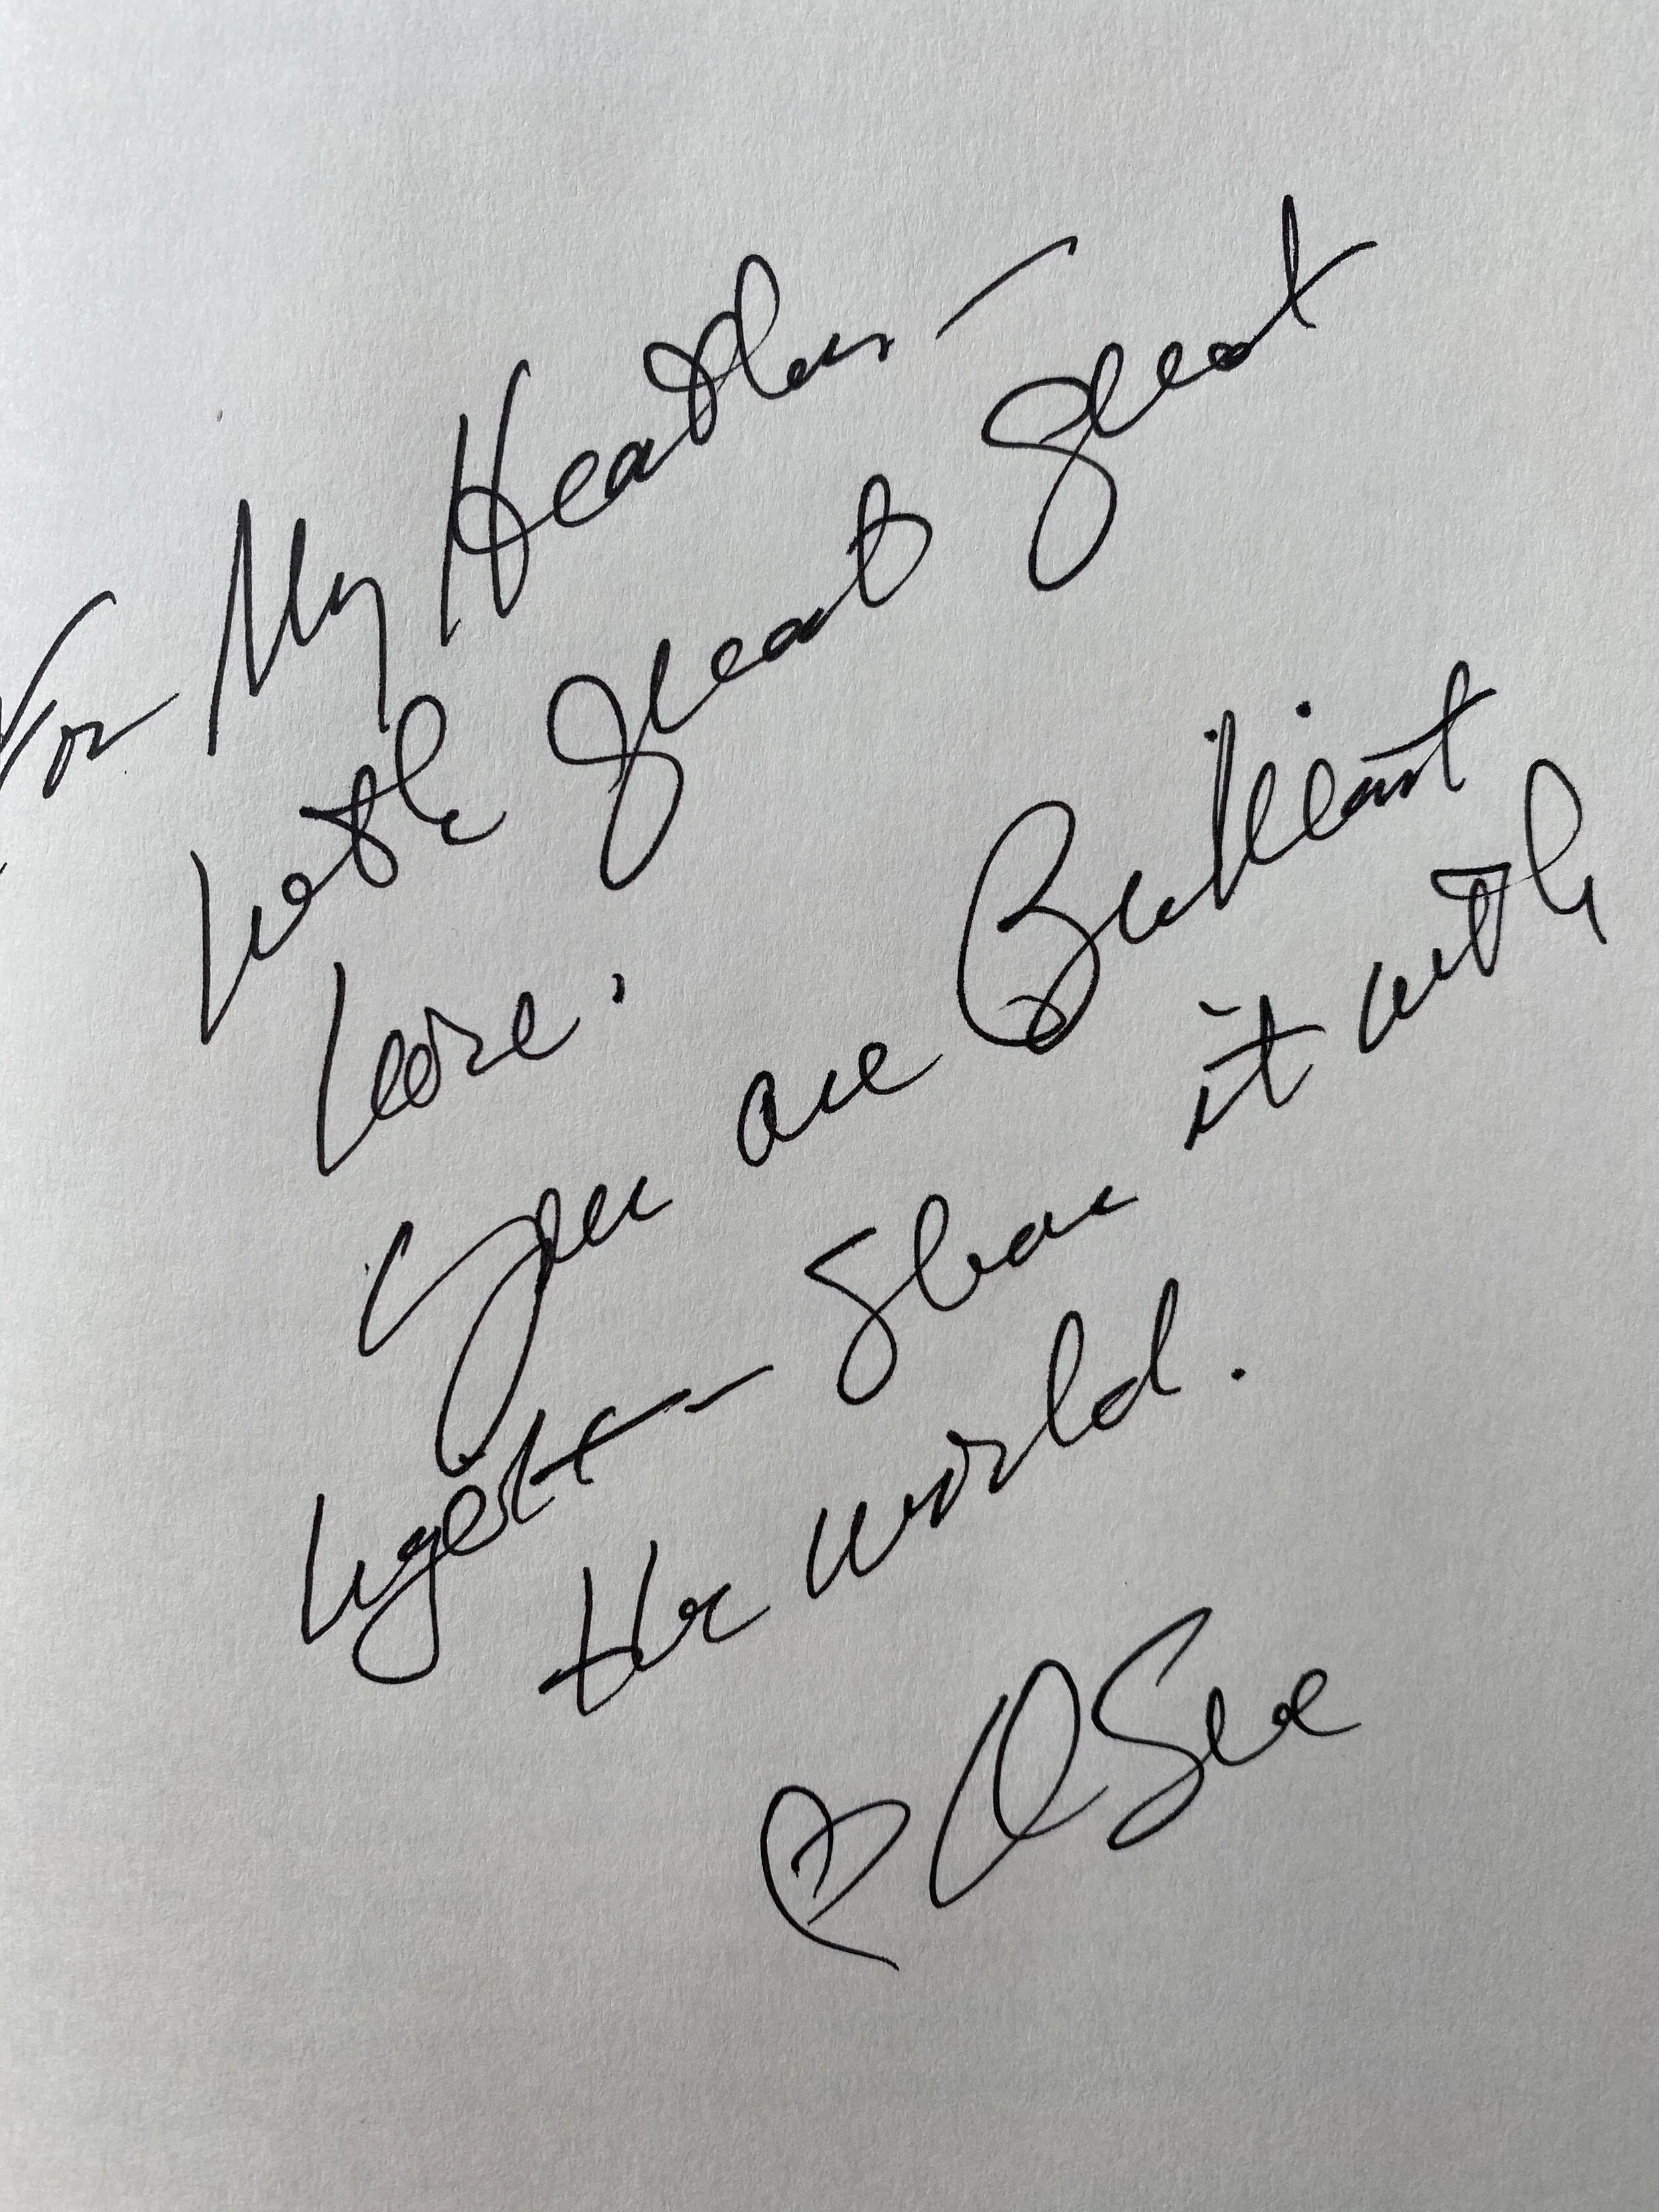 For My Heather —
with great great
love.
You are Brilliant
light — Share it with
the world.
♡ Sue